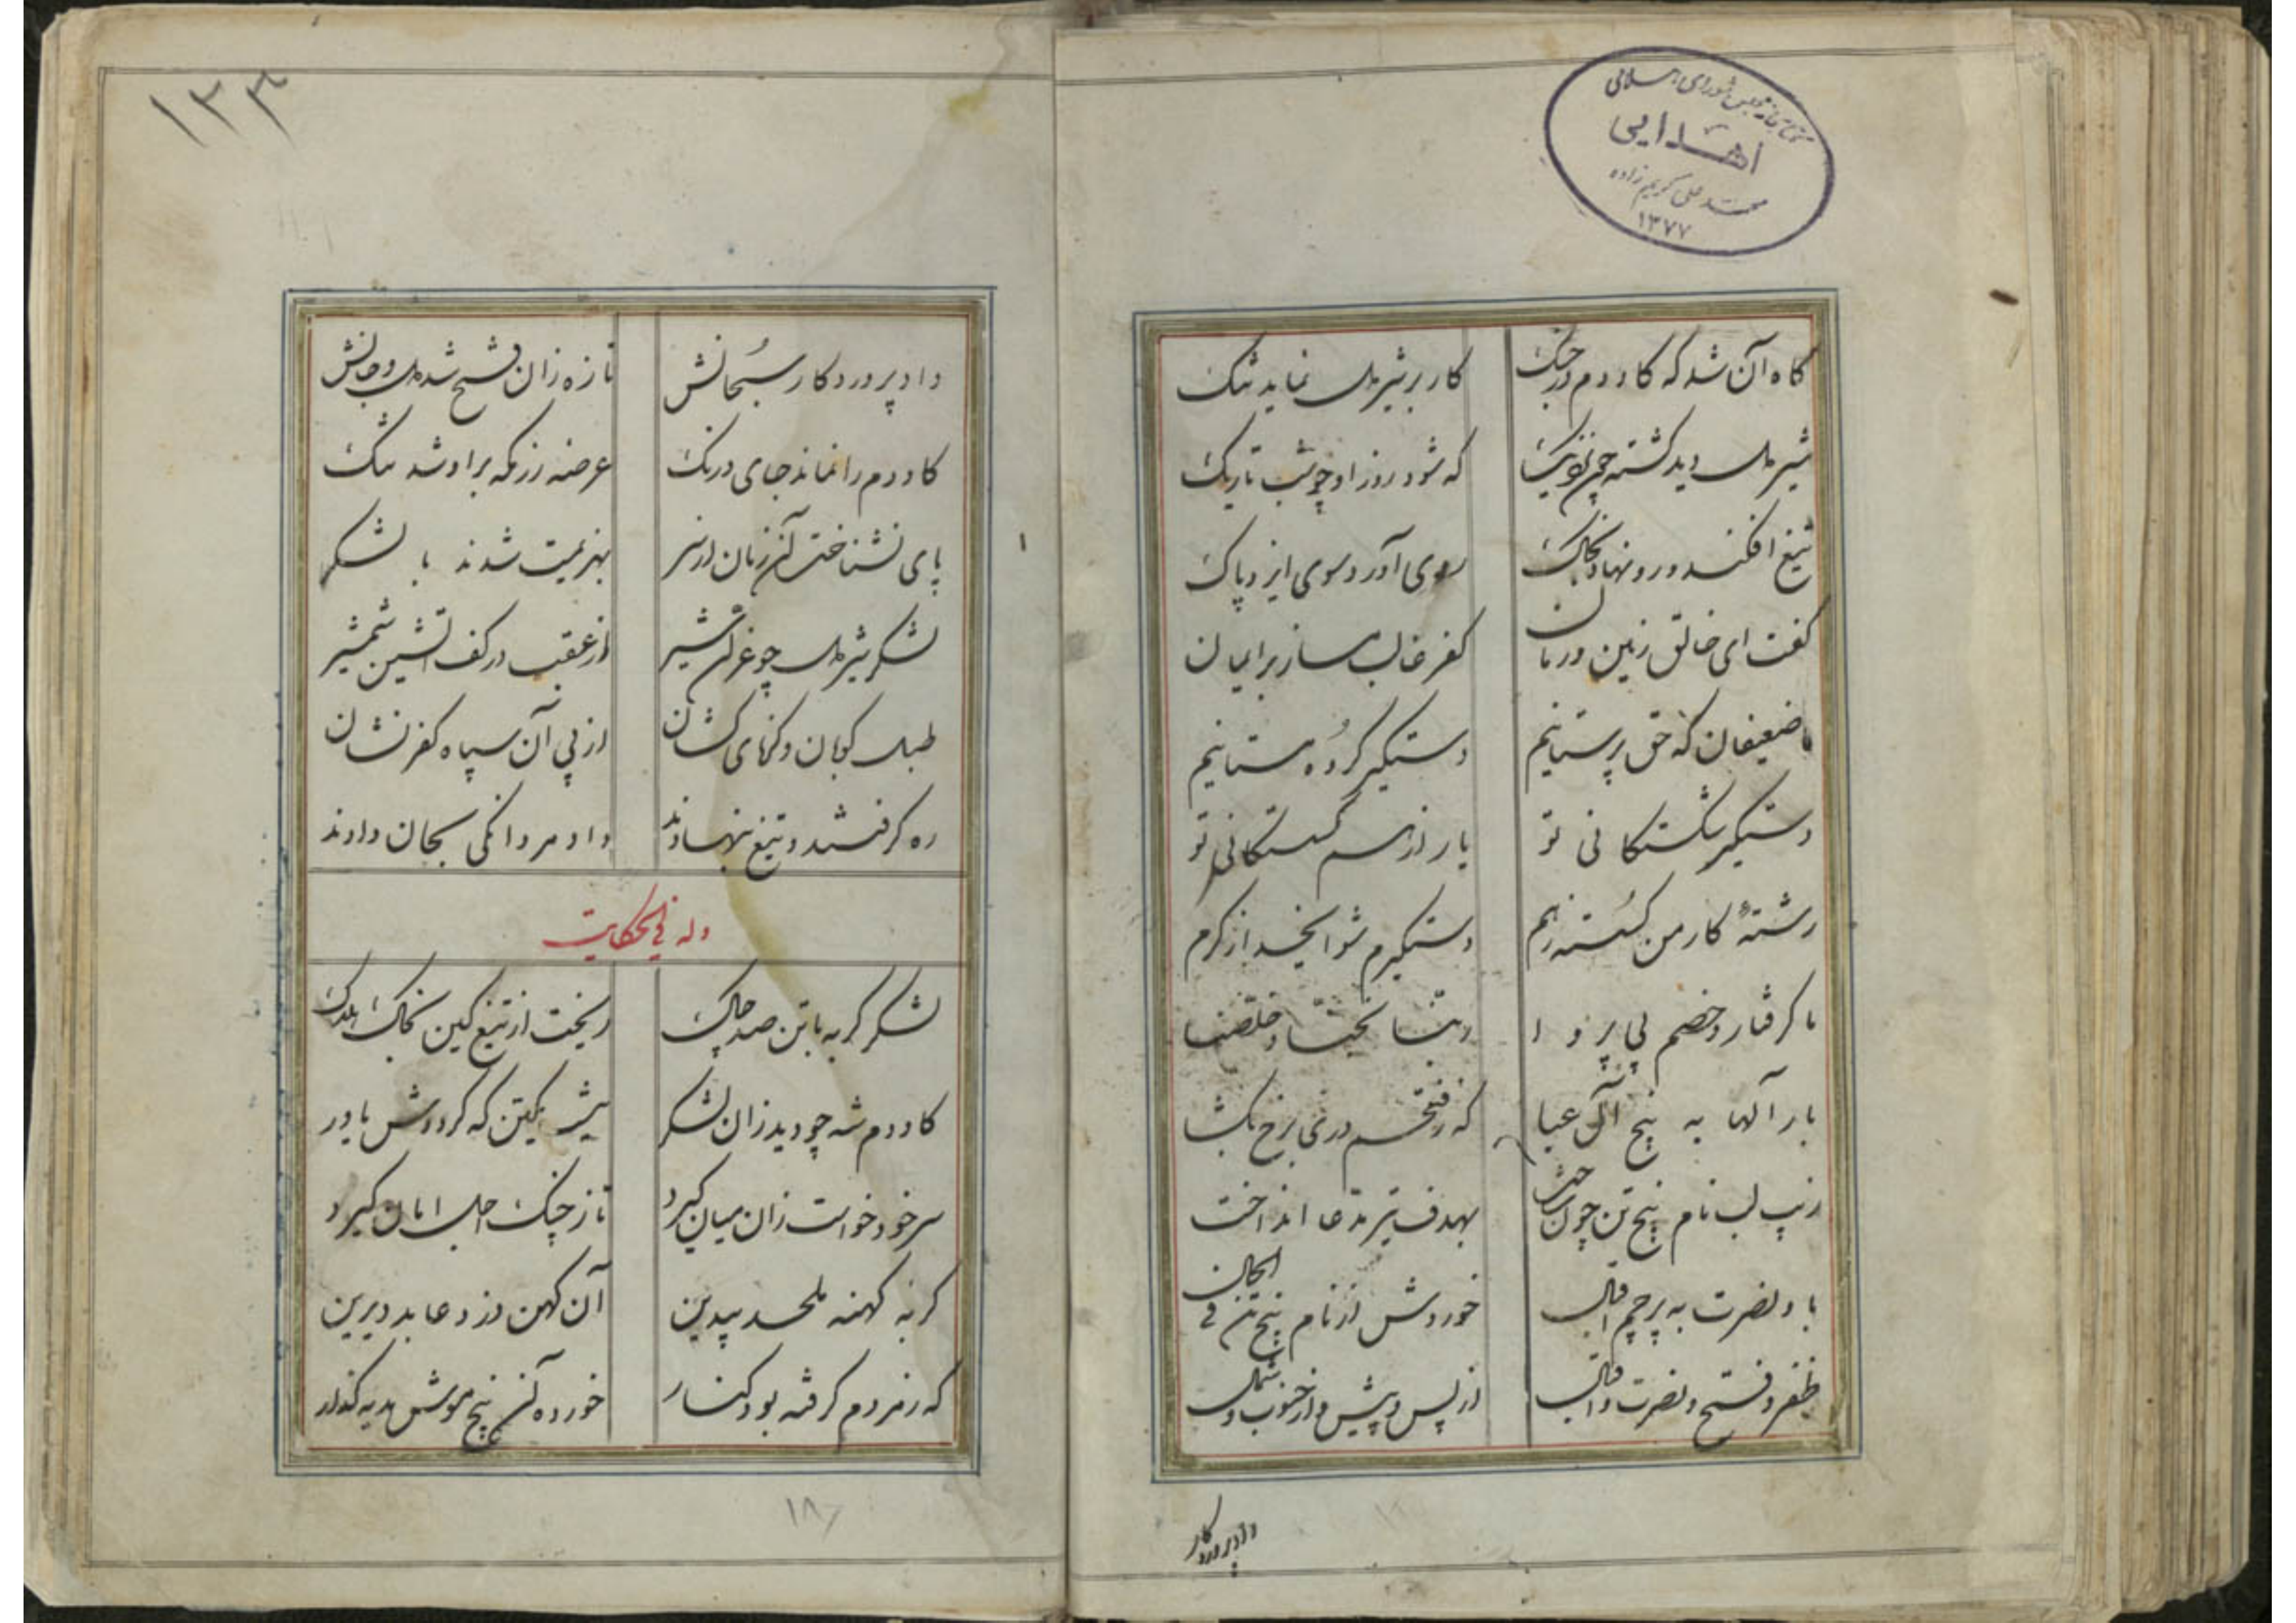 کتابخانه مجلس شورای اسلامی
اهدایی
محمد علی کریم زاده
۱۳۷۷
کاه آن شد که کاودم در جنک کار بر شیردل نماید تنک
شیردل دید کشته چون نزدیک که شود روز او چو شب تاریک
تیغ افکند و رو نهاد بخاک روی آورد سوی ایزد پاک
کفت ای خالق زمین و زمان کفر غالب مساز بر ایمان
ما ضعیفان که حق پرستانیم دستکیر کروه مستانیم
دستکیر شکستکانی تو یار از هم کسستکانی تو
رشتهٔ کار من کسسته زهم دستکیرم شو ایخدا از کرم
ما کرفتار و خصم بی پروا ربنا نجنا و خلصنا
بار آلها به پنج آل عبا که ز فتحم دری برخ بکشا
زیب لب نام پنج تن چون ساخت بهدف تیر مدعا انداخت
باد نصرت به پرچم اقبال خوردش از نام پنج تن فی الحال
ظفر و فتح و نصرت و اقبال از پس و پیش و از جنوب و شمال
داد پروردکار
۱۲۳
داد پروردکار سبحانش تازه زان فتح شد دل و جانش
کاودم را نماند جای درنک عرصه رزمکه بر او شد تنک
پای نشناخت آن زمان از سر بهزیمت شدند با لشکر
لشکر شیردل چو غران شیر از عقب در کف آتشین شمشیر
طبل کوبان و کرنای کشان از پی آن سپاه کفر نشان
ره کرفتند و تیغ بنهادند داد مردانکی بجان دادند
وله فی الحکایت
لشکر کربه با تن صد چاک ریخت از تیغ کین بخاک هلاک
کاودم شه چو دید زان لشکر نیست یکتن که کرددش یاور
سر خود خواست زان میان کیرد تا ز چنک اجل امان کیرد
کربه کهنه ملحد بیدین آن کهن دزد عابد دیرین
که ز مردم کرفته بود کنار خورده آن پنج موش هدیه کذار
۱۸۷